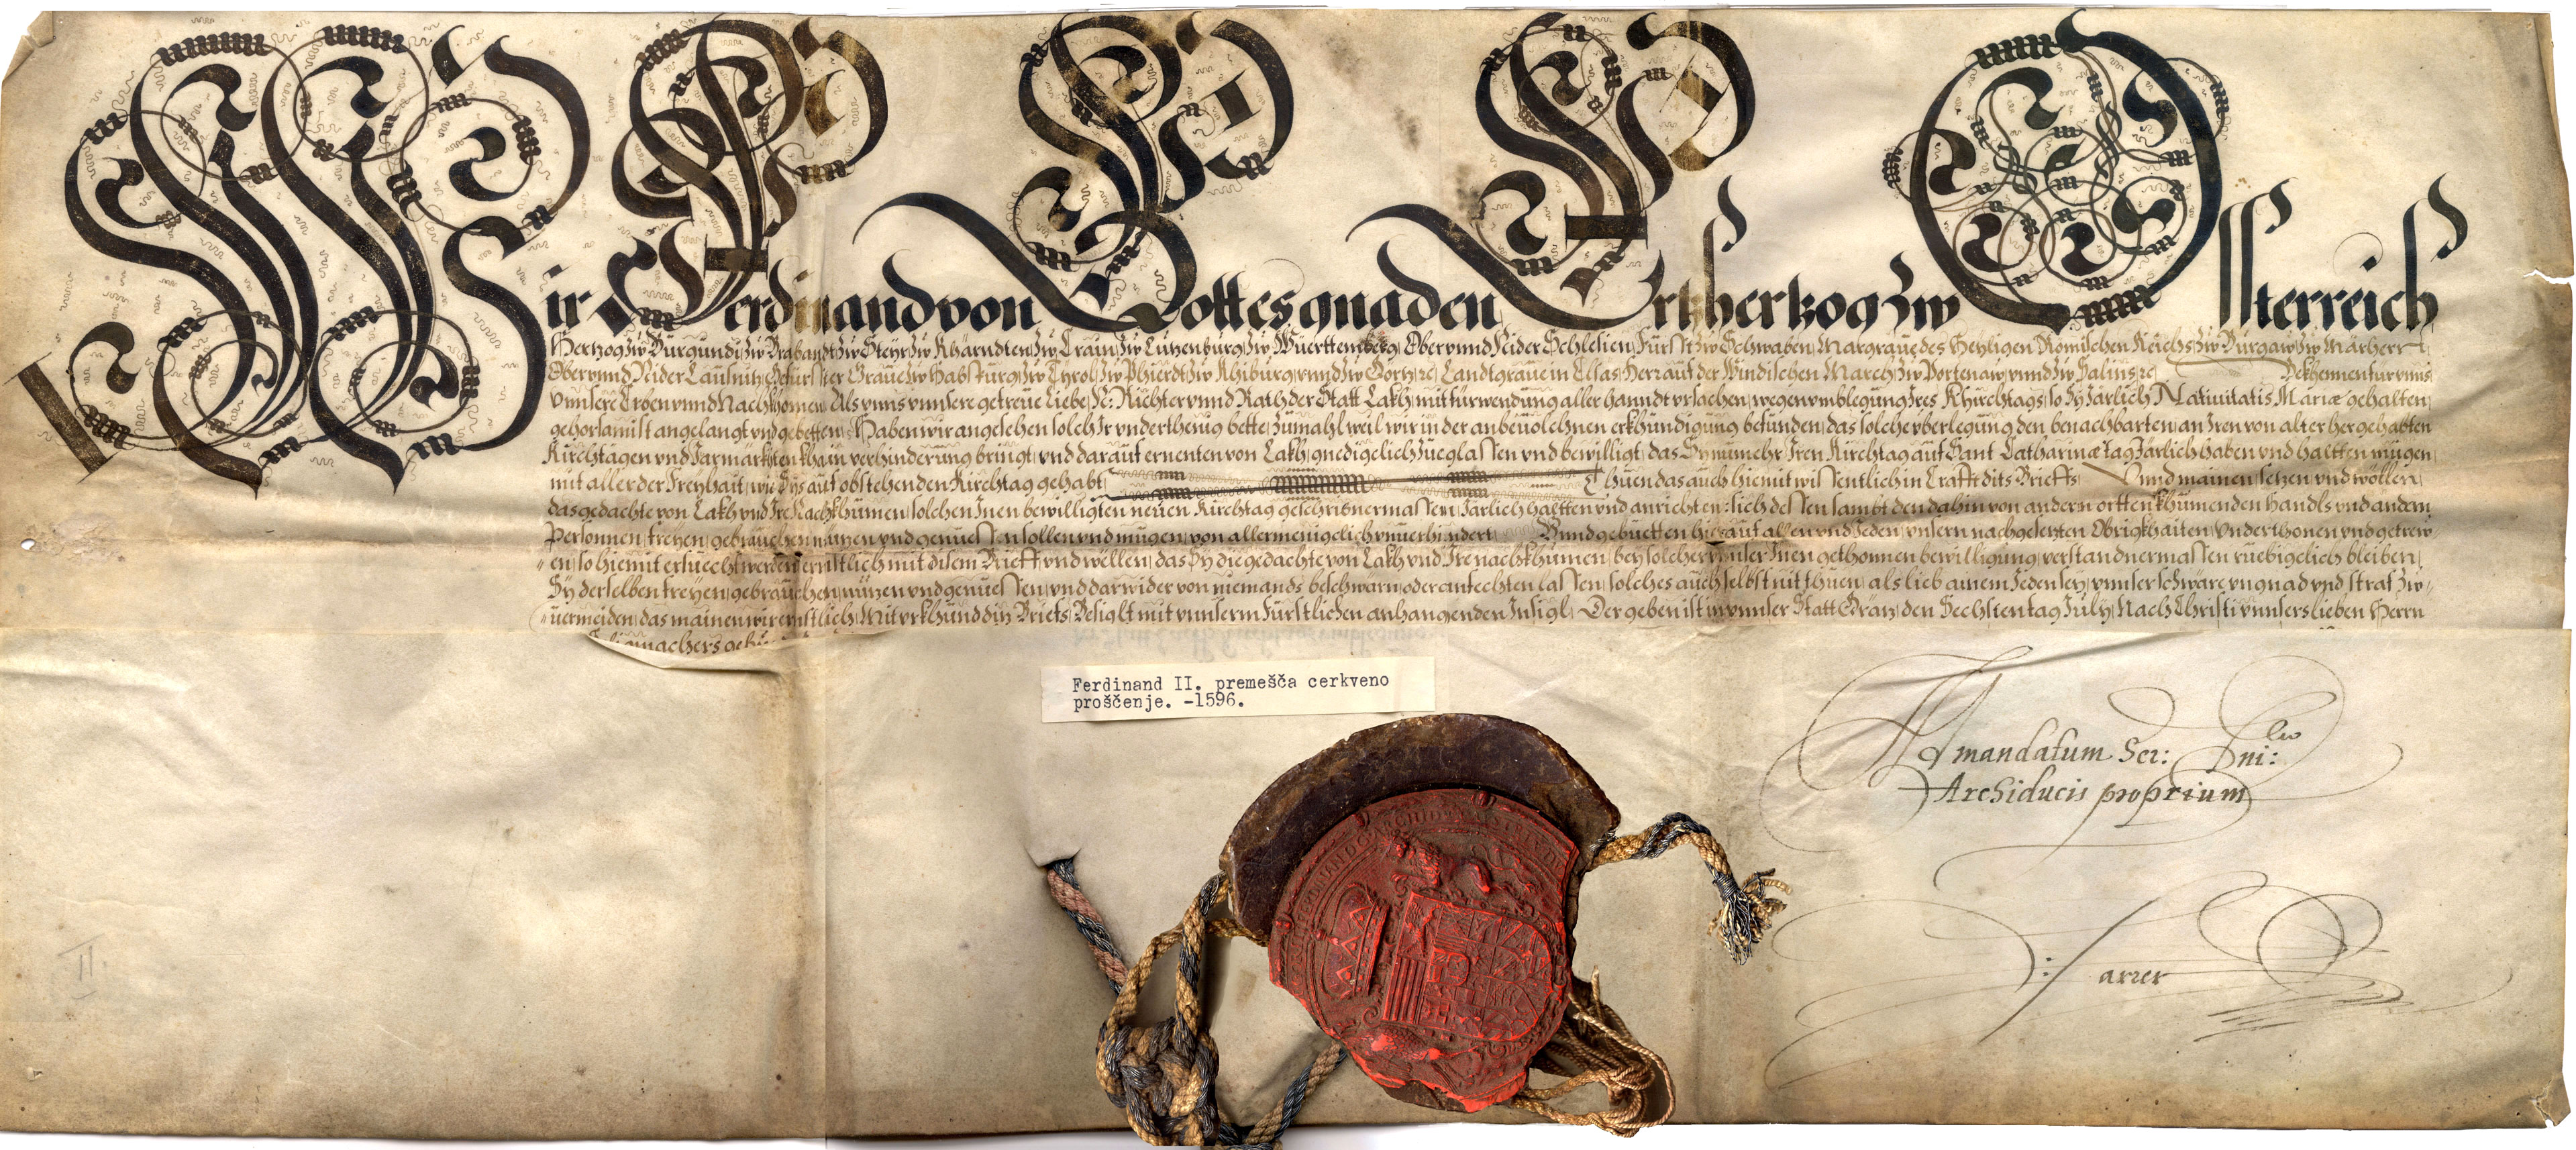 Wir Ferdinand von Gottes gnaden Ertzhertzog zw Össterreich
Hertzog zw Burgundi, zw Brabandt, zw Steyr, zw Khärndten, zw Crain, zw Lützenburg, zw Wuerttemberg, Ober vnnd Nider Schlesien, Fürst zw Schwaben, Marggraue des Heyligen Römischen Reichs, zw Burgaw, zw Märhern,
Ober vnnd Nider Laüsnitz, Gefürster Graue zw Habspurg, zw Tyrol, zw Phierdt, zw Khiburg, vnnd zw Görtz, rc. Landtgraue in Elsas, Herr auf der Windischen March, zw Portenaw, vnnd zw Salins, rc. Bekhennen für vnns
vnnsere Erben vnnd Nachkhomen, Als vnns vnnsere getreüe Liebe, N: Richter vnnd Rath der Statt Lakh, mit fürwendung aller hanndt vrsachen, wegen vmblegung Ires Khirchtags, so Sy Järlich Natiuitatis Mariæ gehalten,
gehorsamist angelangt vnd gebetten, Haben wir angesehen solch Ir vnderthenig bette, Zumahl weil wir in der anbeuolchnen erkhundigung befunden, das solche vberlegung den benachbarten, an Iren von alter her gehabten
Kirchtägen vnd Jarmärkten khain verhinderung bringt, vnd darauf ernenten von Lakh, gnedigelich zuegelassen vnd bewilligt, das Sy nunmehr Iren Kirchtag auf Sant Catharinæ tag Järlich haben vnd haltten mügen,
mit aller der Freyhait, wie Sys auf obstehenden Kirchtag gehabt, Thuen das auch hiemit wissentlich in Crafft dits Brieffs, Vnnd mainen, setzen, vnd wöllen,
das gedachte von Lakh vnd Ire Nachkhumen, solchen Inen bewilligten neuen Kirchtag geschribnermassen, Järlich haltten vnd anrichten, sich dessen sambt den dahin von andern ortten khumenden handls vnd andern
Personnen, freyen, gebrauchen, nützen vnd genuessen sollen vnd mugen, von allermenigelich vnuerhindert, Vnnd gebüetten hierauf allen vnd Jeden, vnsern nachgesetzten Obrigkhaiten, Vnderthonen vnd getrew-
en, so hiemit ersuecht werden, ernstlich mit disem Brieff, vnd wellen, das Sy die gedachte von Lakh vnd Ire nachkhumen, bey solcher vnnser Inen gethonnen bewilligung, verstandnermassen ruebigelich bleiben,
Sy derselben freyen, gebrauchen, nützen vnd genuessen, vnd darwider von niemands beschwärn, oder anfechten lassen, solches auch selbst nit thuen, als lieb ainem Jeden sey, vnnser schwäre vngnad vnd straf zw-
uermeiden, das mainen wir ernstlich, Mit vrkhundt diz Briefs, Besiglt mit vnnserm Fürstlichen anhangenden Insigl, Der geben ist in vnnser Statt Grätz, den Sechsten tag July, Nach Christi vnnsers lieben Herrn
Ferdinand II. premešča cerkveno
proščenje. -1596.
Ad mandatum Ser: Dni:
Archiducis proprium
II